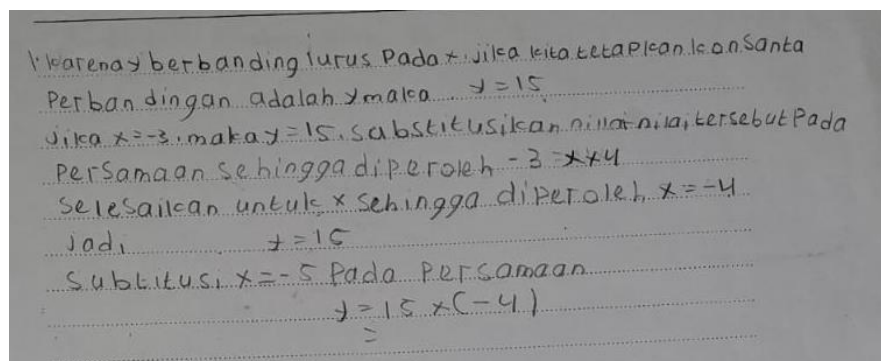 1. karena y berbanding lurus Pada x. jika kita tetapkan konsanta
Perbandingan adalah y maka y = 15
Jika x = -3. maka y = 15. substitusikan nilai-nilai tersebut Pada
Persamaan sehingga diperoleh - 3 = x x 4
selesaikan untuk x sehingga diperoleh x = -4
jadi y = 15
Subtitusi x = -5 Pada Persamaan
y = 15 x (-4)
=